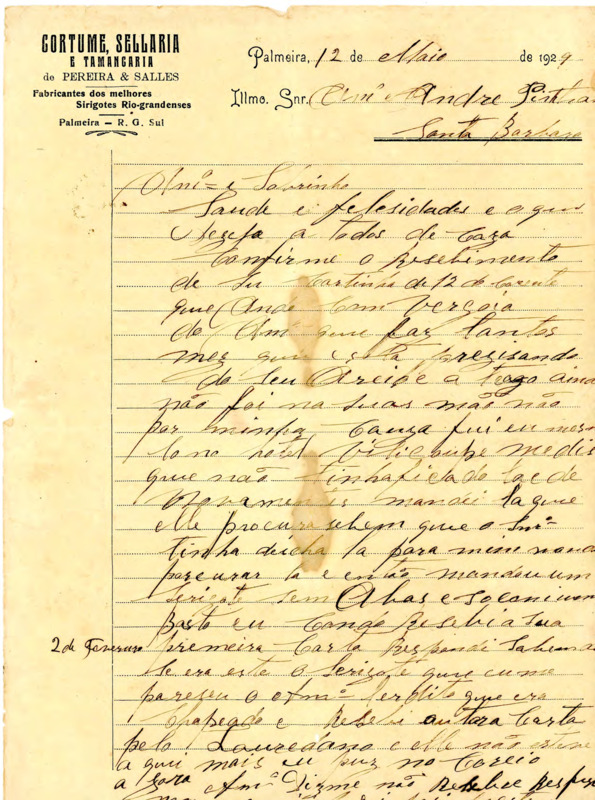 CORTUME, SELLARIA
E TAMANCARIA
de PEREIRA & SALLES
Fabricantes dos melhores
Sirigotes Rio-grandenses
Palmeira — R. G. Sul
Palmeira, 12 de Maio de 1929
Illmo. Snr. Andre
Santa Barbara
Am.º e Sobrinho
Saude e felesidades e o que
deseja a todos de Caza
Comfirme o Resebimento
de su Cartinha de 12 do Corente
que
do Am.º que faz tantos
mez que está prezisando
do seu a tego aind
não foi na suas mão não
por minha Cauza fui eu mes
que não tinha ficado la e de
Novamente mandei la que
elle procurasebem que o Am.º
tinha la para mim
parcurar la e então mandou um
serigote sem Abas e socan
Basto eu Resebi a sua
2 de Fevereiro primeira Carta Respondi
se era este o serigote que
pareseu o Am.º que era
Chapeado e Resebi autora Carta
pelo Louredano e elle não esteve
a qui mais eu puz no Coreio
a gora Am.º Dirme não Resebeu Resp